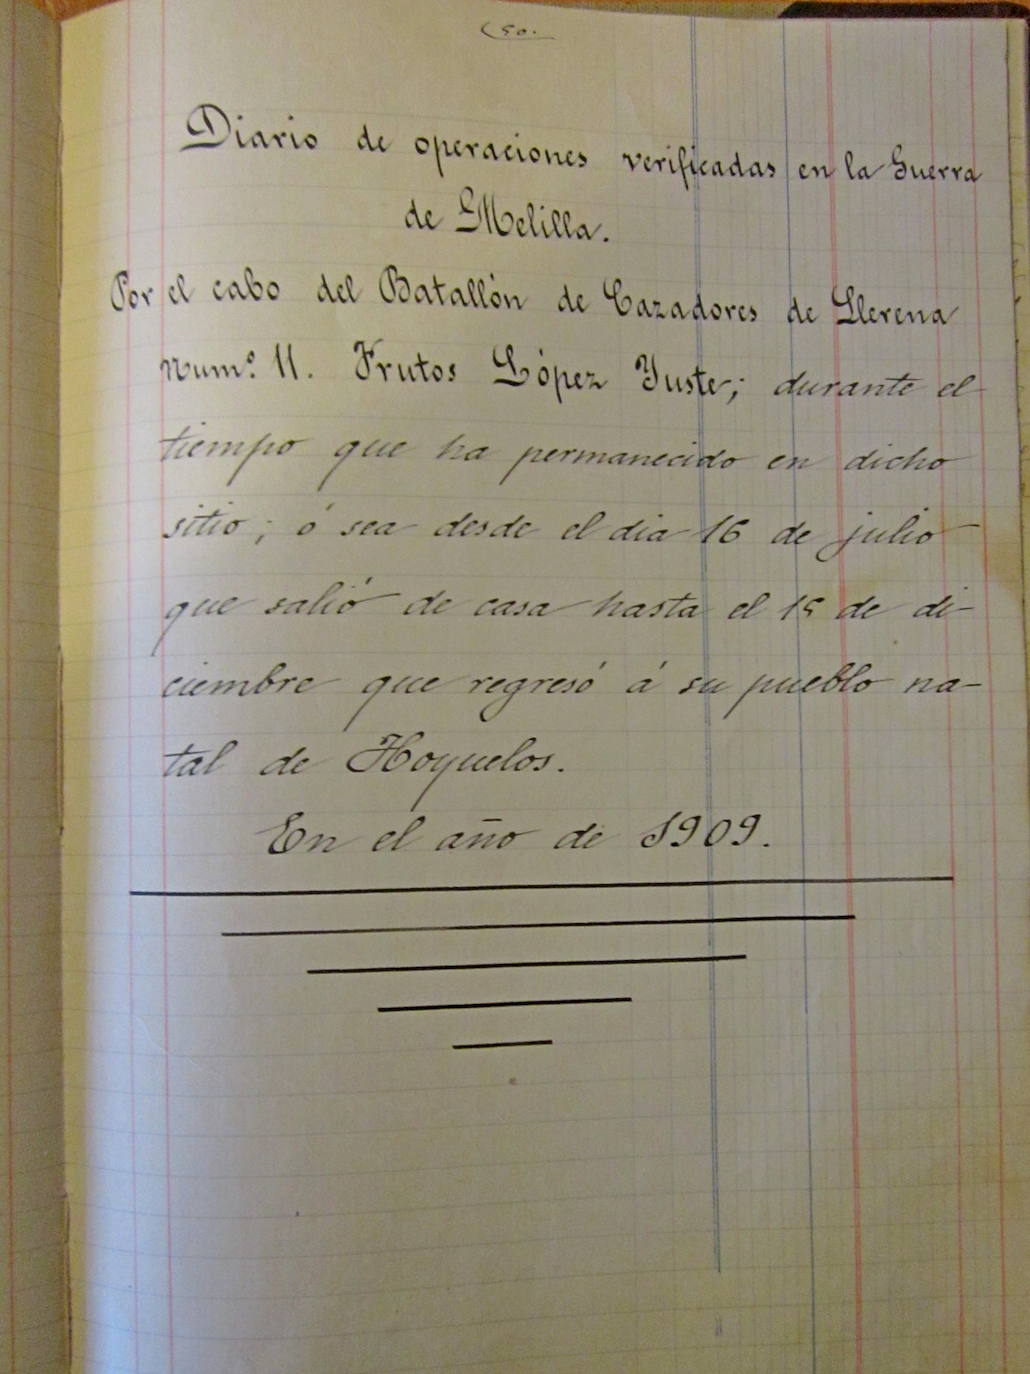 (50.
Diario de operaciones verificadas en la Guerra
de Melilla.
Por el cabo del Batallón de Cazadores de Llerena
Num.º 11. Frutos López Yuste; durante el
tiempo que ha permanecido en dicho
sitio; ó sea desde el dia 16 de julio
que salió de casa hasta el 15 de di-
ciembre que regresó á su pueblo na-
tal de Hoyuelos.
En el año de 1909.